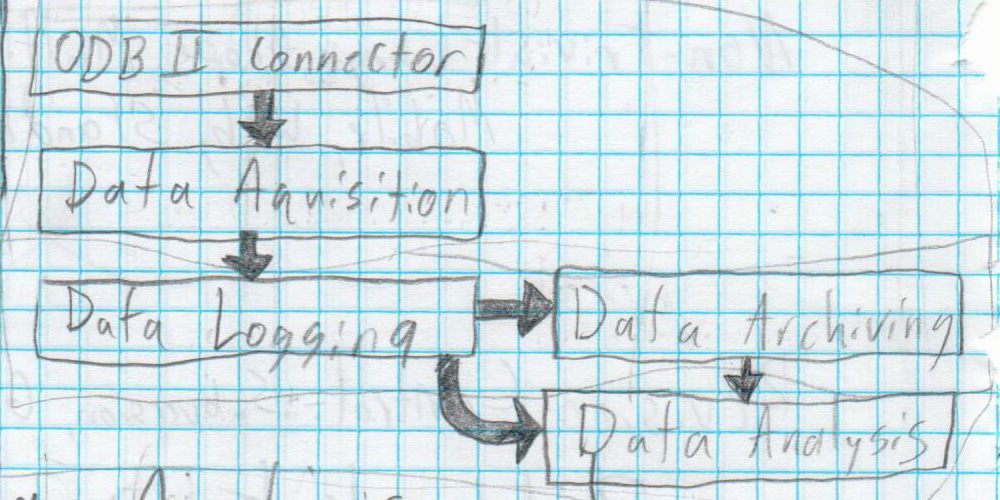 ODB II Connector
Data Aquisition
Data Logging
Data Archiving
Data Analysis